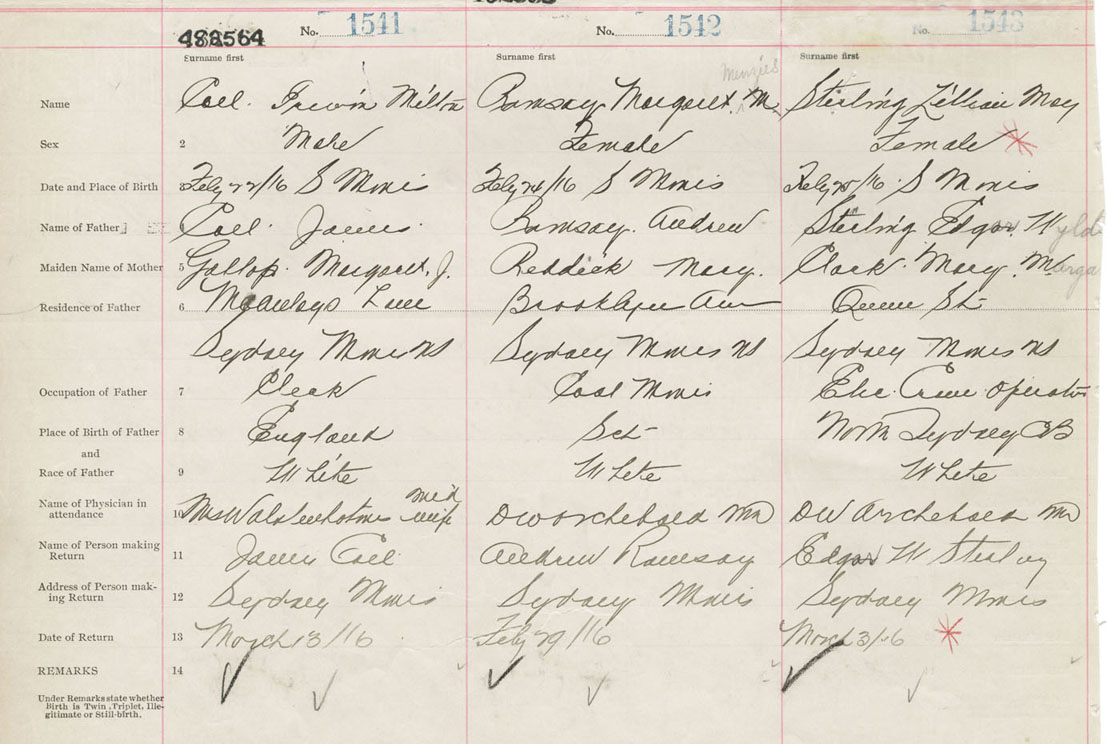 488564 No. 1541 No. 1542 No. 1543
Surname first Surname first Surname first
Menzies
Name Coel. Irwin Milton Ramsay. Margaret. M. Sterling Lillian May
Sex 2 Male Female Female
Date and Place of Birth Feby 22/16 S Mines Feby 24/16 S Mines Feby 25/16. S Mines
Name of Father Coel. James. Ramsay. Andrew Sterling Edgar. Wyld
Maiden Name of Mother 5 Gallop. Margaret. J. Reddick Mary. Clark. Mary. Marga
Residence of Father 6 Line Brooklyn Ave Queen St
Sydney Mines NS Sydney Mines NS Sydney Mines NS
Occupation of Father 7 Clerk Coal Mines Elec. Crane Operator
Place of Birth of Father 8 England Sct North Sydney CB
and
Race of Father 9 White White White
Name of Physician in mid
attendance 10 Mrs wife DW Archebald MD DW Archebald MD
Name of Person making
Return 11 James Coel. Andrew Ramsay Edgar W Sterling
Address of Person mak-
ing Return 12 Sydney Mines Sydney Mines Sydney Mines
Date of Return 13 March 13/16 Feby 29/16 March 3/16
REMARKS 14
Under Remarks state whether
Birth is Twin, Triplet, Ille-
gitimate or Still-birth.